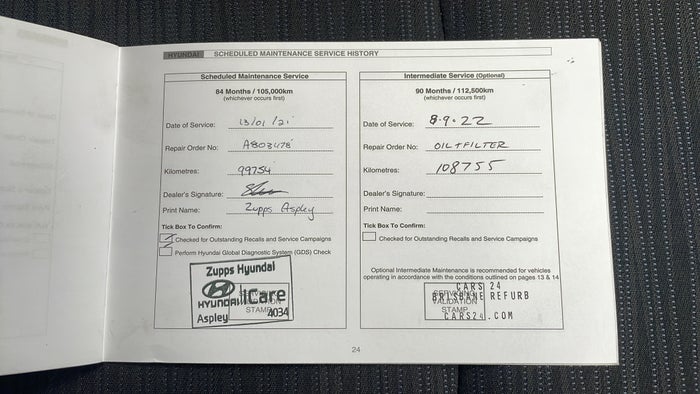 HYUNDAI SCHEDULED MAINTENANCE SERVICE HISTORY
Scheduled Maintenance Service
84 Months / 105,000km
(whichever occurs first)
Date of Service: 13/01/21
Repair Order No: A803478
Kilometres: 99754
Dealer's Signature:
Print Name: Zupps Aspley
Tick Box To Confirm:
Checked for Outstanding Recalls and Service Campaigns
Perform Hyundai Global Diagnostic System (GDS) Check
Zupps Hyundai
HYUNDAI iCare
STAMP 4034
Aspley
Intermediate Service (Optional)
90 Months / 112,500km
(whichever occurs first)
Date of Service: 8.9.22
Repair Order No: OIL + FILTER
Kilometres: 108755
Dealer's Signature:
Print Name:
Tick Box To Confirm:
Checked for Outstanding Recalls and Service Campaigns
Optional Intermediate Maintenance is recommended for vehicles
operating in accordance with the conditions outlined on pages 13 & 14
CARS 24
BRISBANE REFURB
VALIDATION
STAMP
CARS24.COM
24